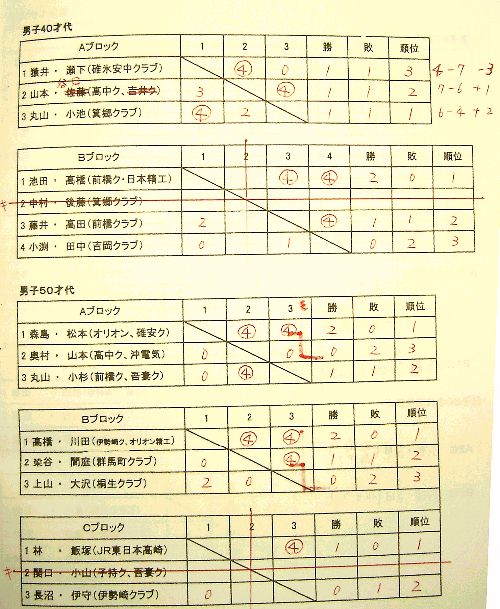 男子40才代
Aブロック 1 2 3 勝 敗 順位
1 猿井・ 瀬下(碓氷安中クラブ) ④ 0 1 1 3 4-7 -3
2 山本・ 佐藤(高中ク、吉井ク) 3 ④ 1 1 2 7-6 +1
3 丸山・ 小池(箕郷クラブ) ④ 2 1 1 1 6-4 +2
Bブロック 1 2 3 4 勝 敗 順位
1 池田・ 高橋(前橋ク・日本精工) ④ ④ 2 0 1
キ 2 中村・ 後藤(箕郷クラブ)
3 藤井・ 高田(前橋クラブ) 2 ④ 1 1 2
4 小渕・ 田中(吉岡クラブ) 0 1 0 2 3
男子50才代
Aブロック 1 2 3 勝 敗 順位
1 森島・ 松本(オリオン、碓安ク) ④ ④ 2 0 1
2 奥村・ 山本(高中ク、沖電気) 0 0 0 2 3
3 丸山・ 小杉(前橋ク、吾妻ク) 0 ④ 1 1 2
Bブロック 1 2 3 勝 敗 順位
1 高橋・ 川田(伊勢崎ク、オリオン精工) ④ ④ 2 0 1
2 染谷・ 間庭(群馬町クラブ) 0 ④ 1 1 2
3 上山・ 大沢(桐生クラブ) 2 0 0 2 3
Cブロック 1 2 3 勝 敗 順位
1 林・ 飯塚(JR東日本高崎) ④ 1 0 1
キ 2 関口・ 小山(子持ク、吾妻ク)
3 長沼・ 伊守(伊勢崎クラブ) 0 0 1 2